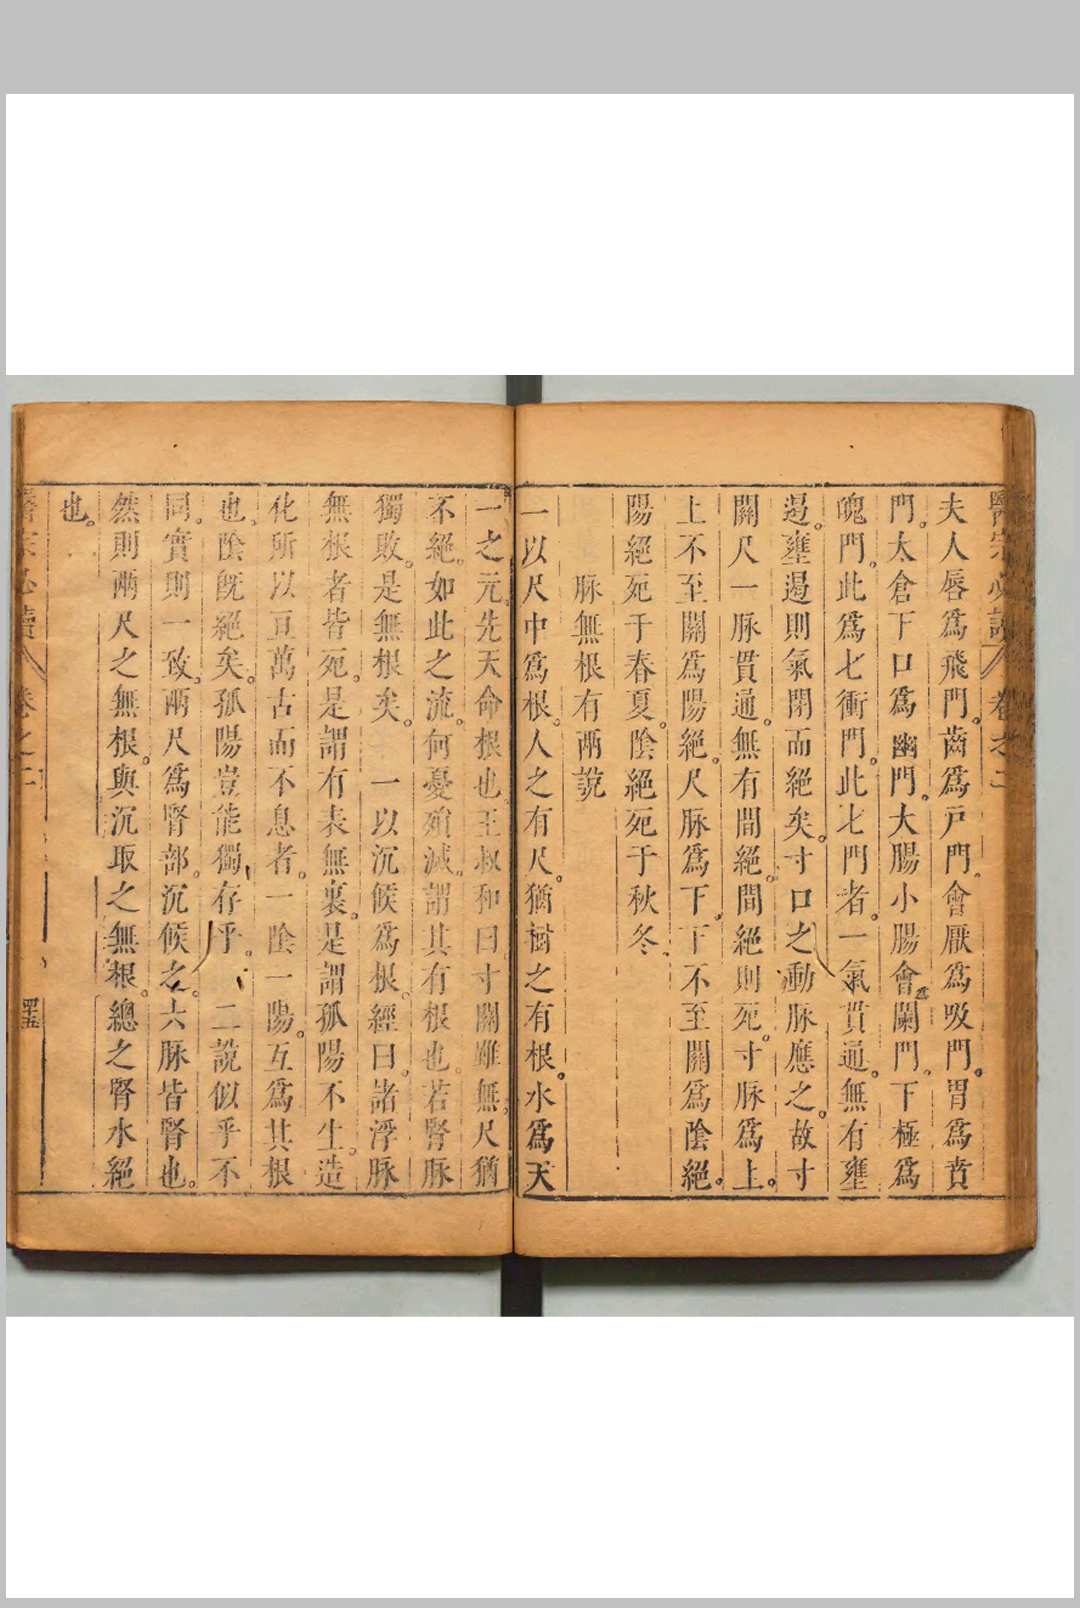 醫宗必讀 卷之二
夫人唇爲飛門。齒爲戸門。會厭爲吸門。胃爲賁
門。太倉下口爲幽門。大腸小腸會爲闌門。下極爲
魄門。此爲七衝門。此七門者。一氣貫通。無有壅
遏。壅遏則氣閉而絕矣。寸口之動脉應之。故寸
關尺一脉貫通。無有間絕。間絕則死。寸脉爲上。
上不至關爲陽絕。尺脉爲下。下不至關爲陰絕。
陽絕死于春夏。陰絕死于秋冬。
脉無根有兩說
一以尺中爲根。人之有尺。猶樹之有根。水爲天
一之元。先天命根也。王叔和曰。寸關雖無。尺猶
不絕。如此之流。何憂殞滅。謂其有根也。若腎脉
獨敗。是無根矣。一以沉候爲根。經曰。諸浮脉
無根者皆死。是謂有表無裏。是謂孤陽不生。造
化所以亘萬古而不息者。一陰一陽。互爲其根
也。陰旣絕矣。孤陽豈能獨存乎。二說似乎不
同。實則一致。兩尺爲腎部。沉候之。六脉皆腎也。
然則兩尺之無根。與沉取之無根。總之腎水絕
也。
醫宗必讀 卷之二 四十五